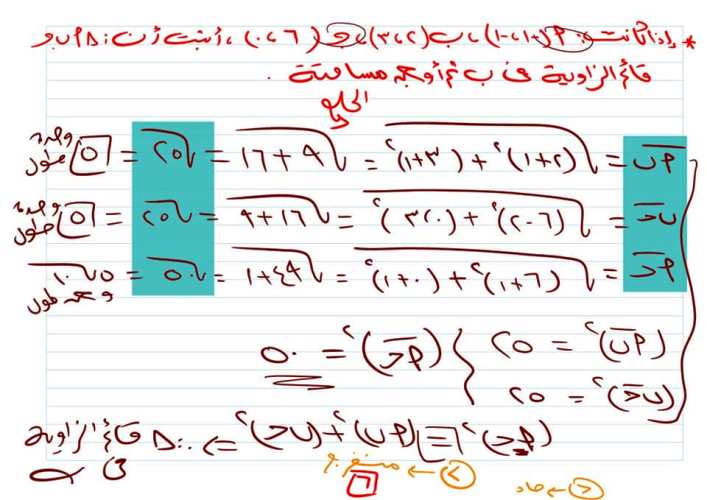 * إذا كانت: أ(-١،-١)، ب(٢،٣)، ج(٦،٠)، أثبت أن: Δ أ ب ج
قائم الزاوية في ب ثم أوجد مساحته .
الحل
أب = √(٢+١)² + (٣+١)² = √٩ + ١٦ = √٢٥ = ٥ وحدة طول
ب ج = √(٦-٢)² + (٠-٣)² = √١٦ + ٩ = √٢٥ = ٥ وحدة طول
أج = √(٦+١)² + (٠+١)² = √٤٩ + ١ = √٥٠ = ٥√٢ وحدة طول
(أب)² = ٢٥ } (أج)² = ٥٠
(ب ج)² = ٢٥
(أج)² = (أب)² + (ب ج)² ⇐ ∴ Δ قائم الزاوية
في ب
> ← منفرجة
< ← حاد